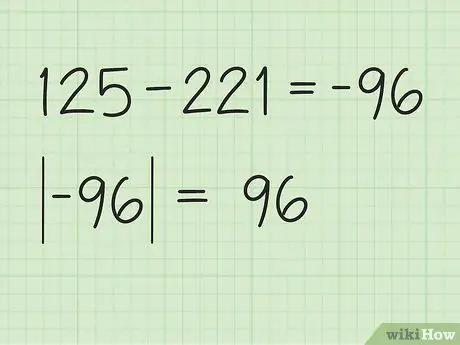 125 - 221 = -96
|-96| = 96
wikiHow